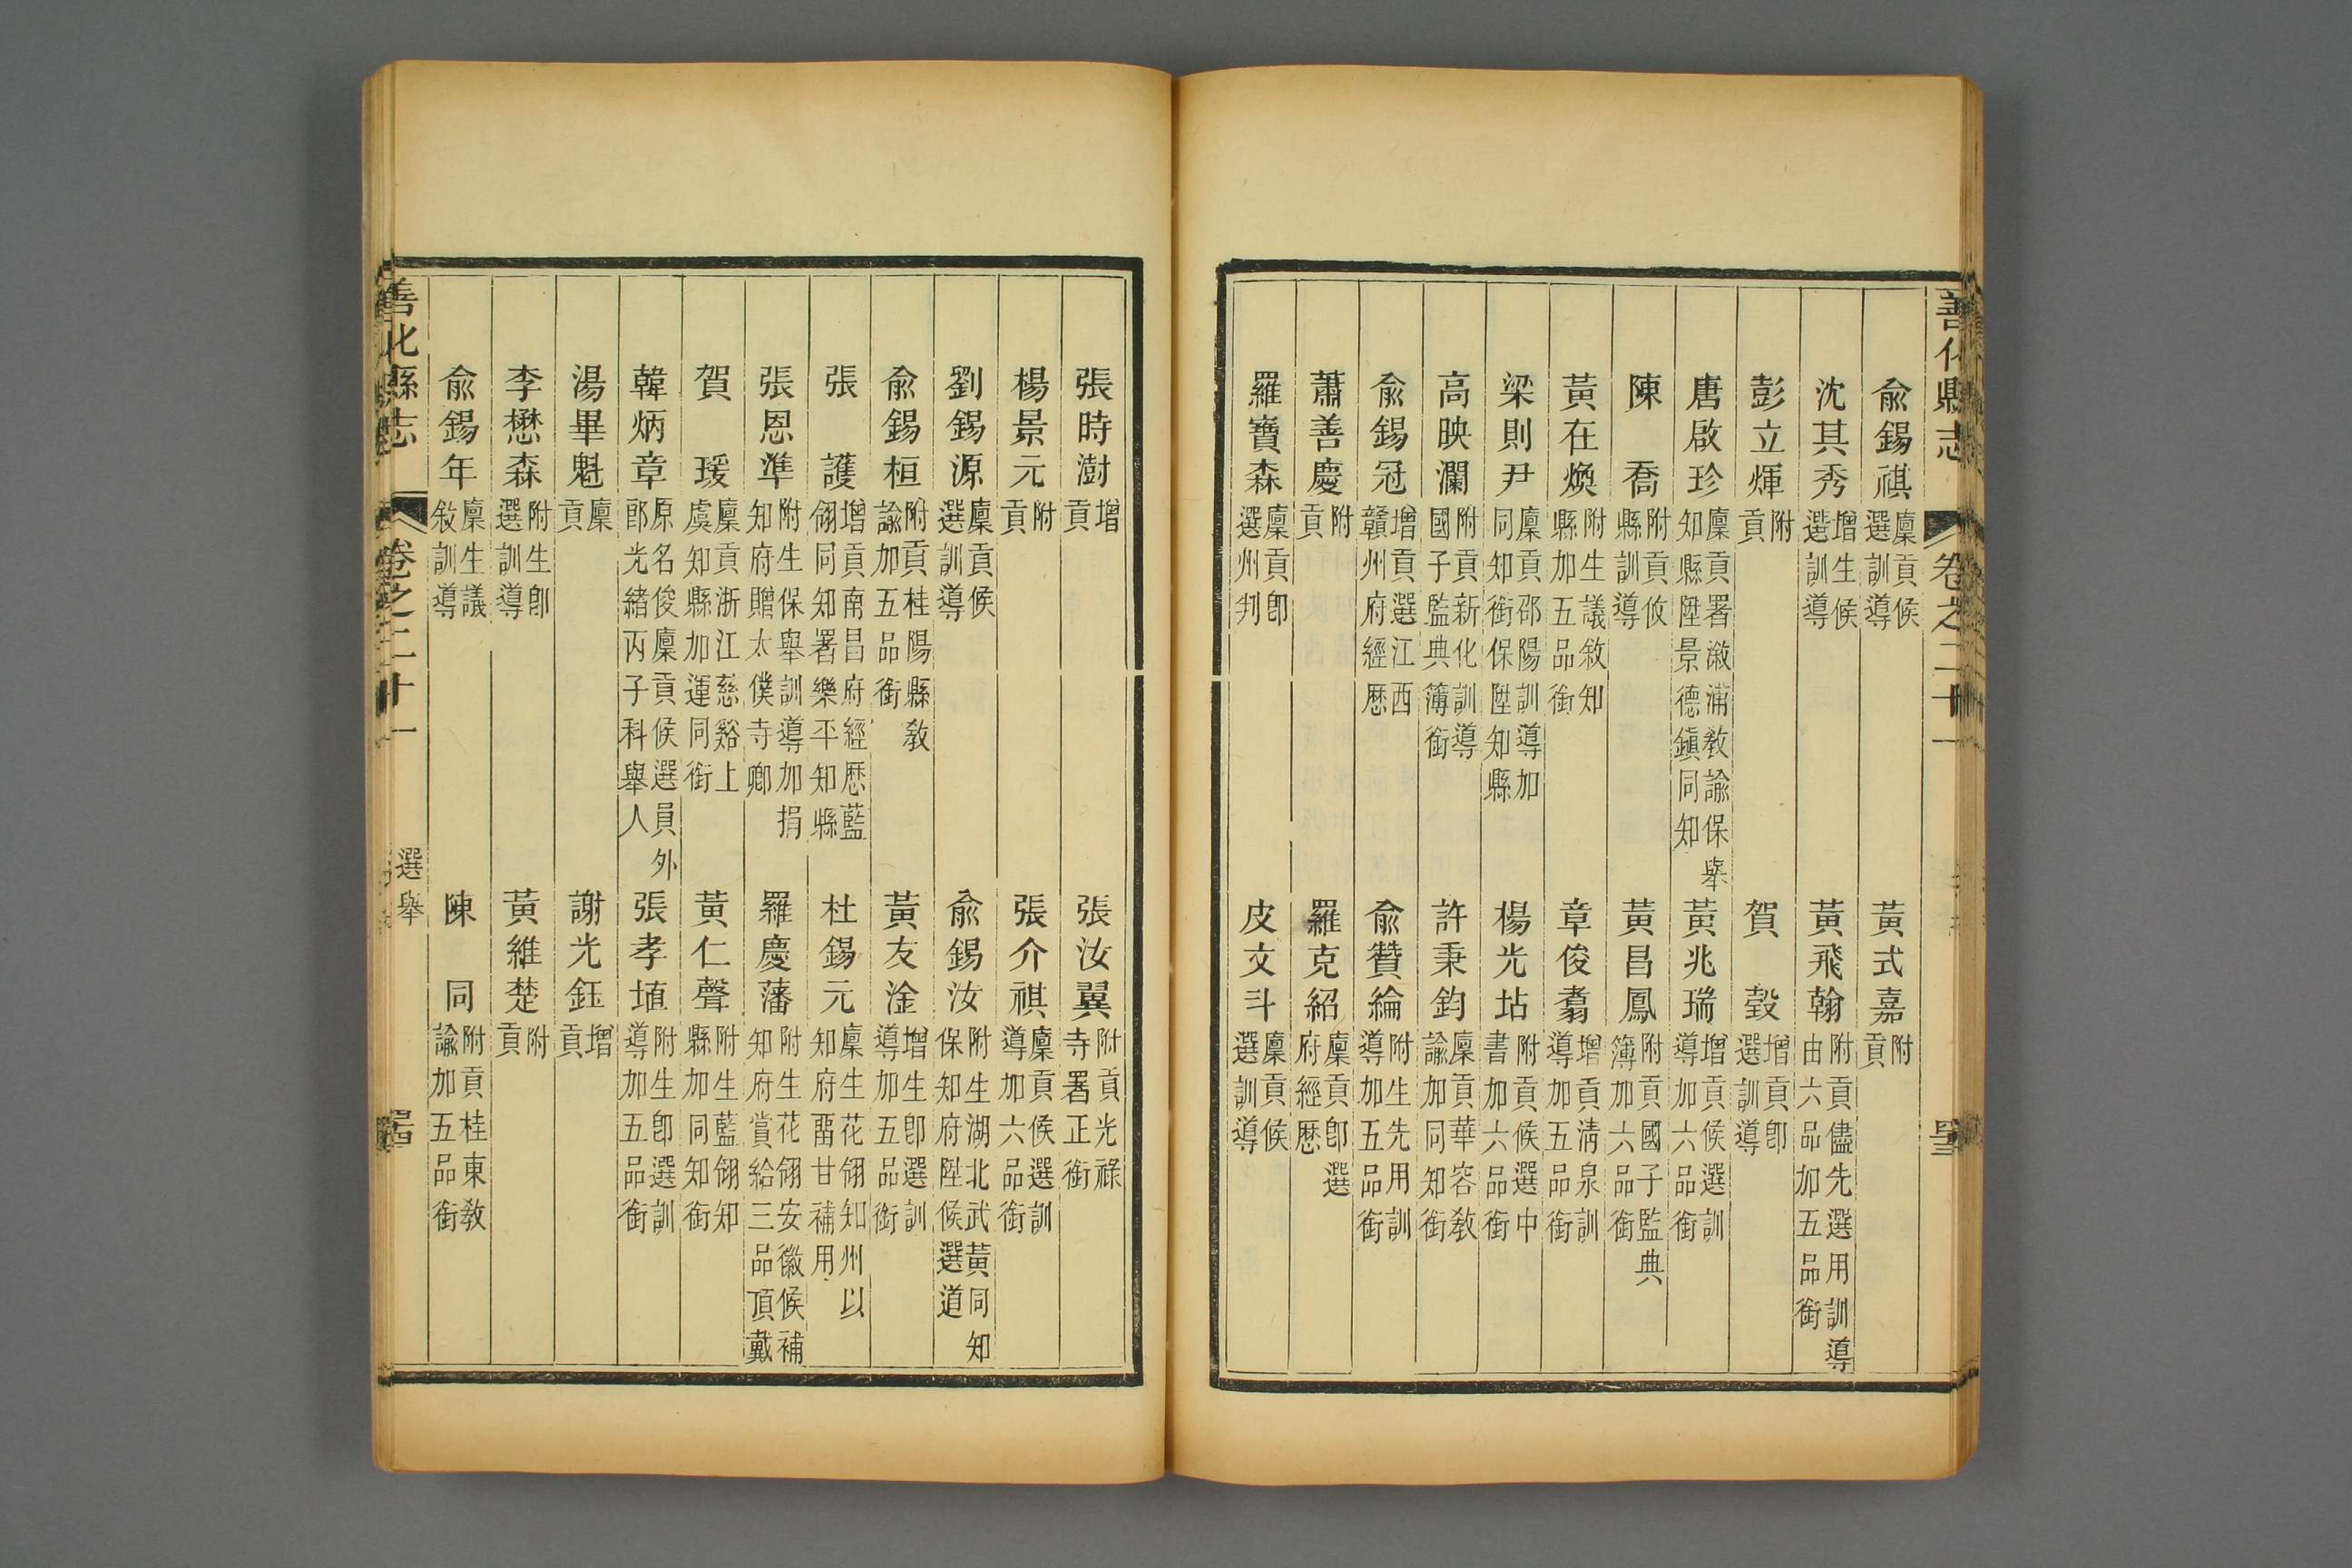 善化縣志 卷之二十一
俞錫祺 廩貢候選訓導 黃式嘉 附貢
沈其秀 增生候選訓導 黃飛翰 附貢儘先選用訓導由六品加五品銜
彭立煇 附貢 賀 瑴 增貢即選訓導
唐啟珍 廩貢署漵浦教諭保舉知縣陞景德鎮同知 黃兆瑞 增貢候選訓導加六品銜
陳 喬 附貢攸縣訓導 黃昌鳳 附貢國子監典簿加六品銜
黃在煥 附生議敘知縣加五品銜 章俊翥 增貢清泉訓導加五品銜
梁則尹 廩貢邵陽訓導加同知銜保陞知縣 楊光坫 附貢候選中書加六品銜
高映瀾 附貢新化訓導國子監典簿銜 許秉鈞 廩貢華容教諭加同知銜
俞錫冠 增貢選江西贛州府經歷 俞贊綸 附生先用訓導加五品銜
蕭善慶 附貢 羅克紹 廩貢即選府經歷
羅寶森 廩貢即選州判 皮文斗 廩貢候選訓導
張時澍 增貢 張汝翼 附貢光祿寺署正銜
楊景元 附貢 張介祺 廩貢候選訓導加六品銜
劉錫源 廩貢候選訓導 俞錫汝 附生湖北武黃同知保知府陞候選道
俞錫桓 附貢桂陽縣教諭加五品銜 黃友淦 增生即選訓導加五品銜
張 護 增貢南昌府經歷藍翎同知署樂平知縣 杜錫元 廩生花翎知州以知府留甘補用
張恩準 附生保舉訓導加捐知府贈太僕寺卿 羅慶藩 附生花翎安徽候補知府賞給三品頂戴
賀 瑗 廩貢浙江慈谿上虞知縣加運同銜 黃仁聲 附生藍翎知縣加同知銜
韓炳章 原名俊廩貢候選員外郎光緒丙子科舉人 張孝埴 附生即選訓導加五品銜
湯畢魁 廩貢 謝光鈺 增貢
李懋森 附生即選訓導 黃維楚 附貢
俞錫年 廩生議敘訓導 陳 同 附貢桂東教諭加五品銜
善化縣志 卷之二十一 選舉